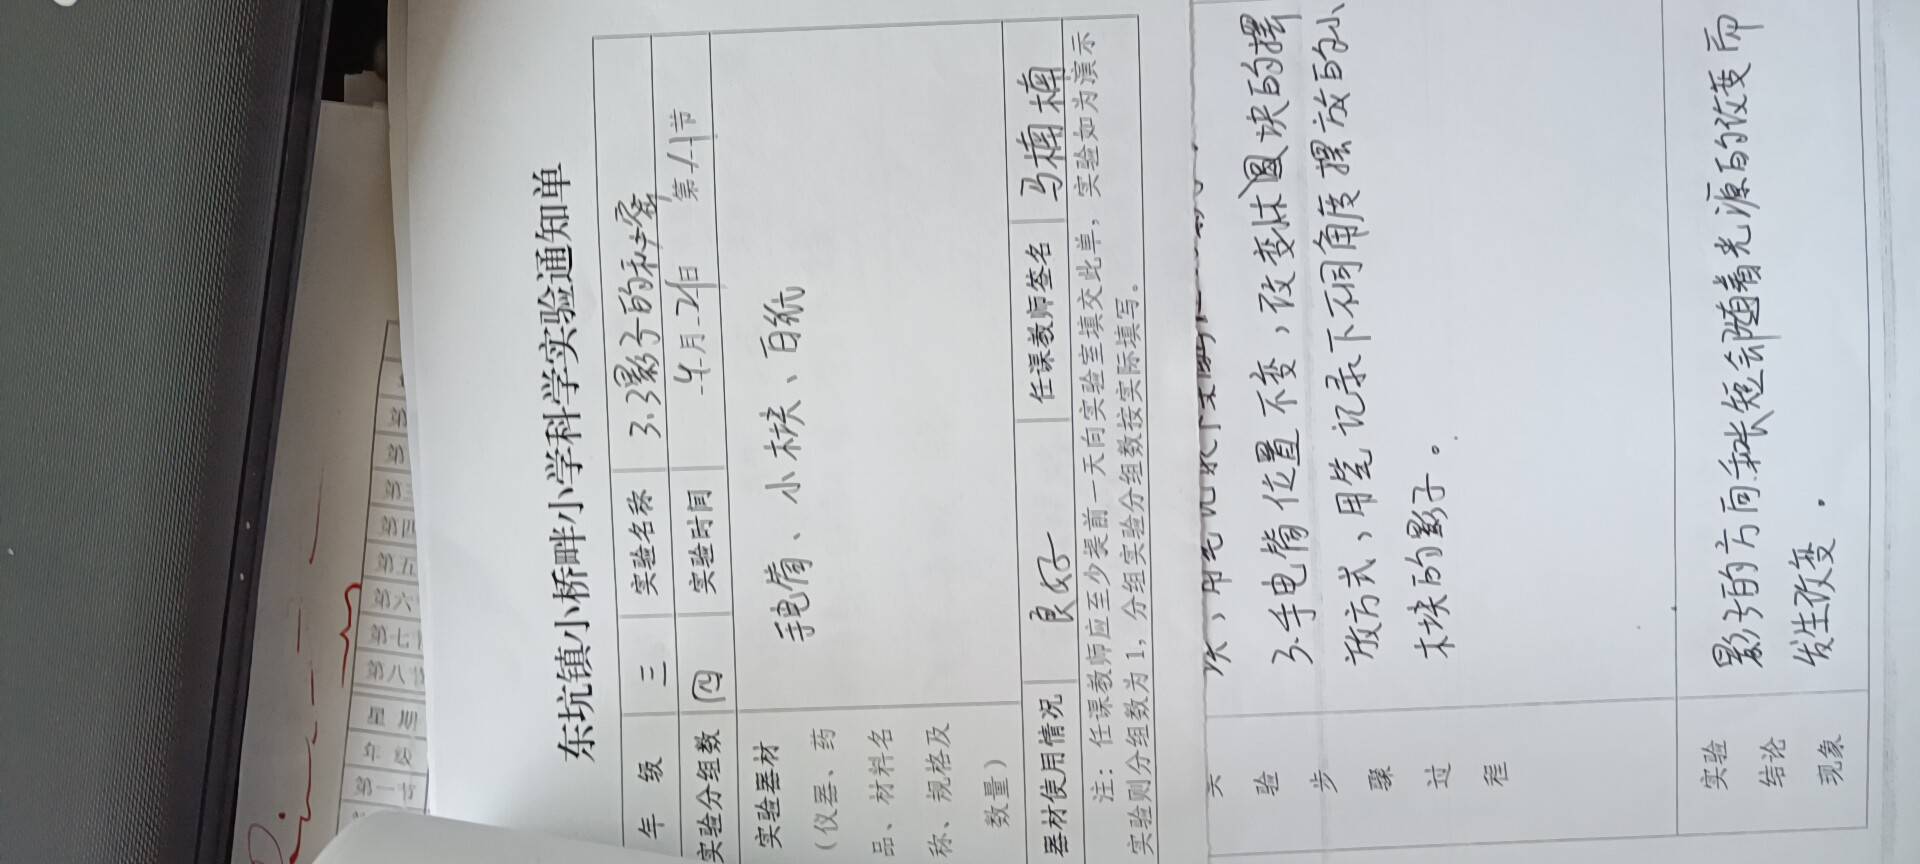 东坑镇小桥畔小学科学实验通知单
年 级 三 实验名称 3.3影子的秘密
实验分组数 四 实验时间 4月21日 第1节
实验器材
(仪器、药
品、材料名
称、规格及
数量)
手电筒、小木块、白纸
器材使用情况 良好 任课教师签名 马楠楠
注: 任课教师应至少提前一天向实验室填交此单, 实验如为演示
实验则分组数为1, 分组实验分组数按实际填写。
验
步
骤
过
程
3.手电筒位置不变,改变木块的摆
放方式,用笔记录下不同角度摆放的小
木块的影子。
实验
结论
现象
影子的方向和长短会随着光源的改变而
发生改变.
第五
第六
第七
第八节
星 期
年 级
第一节